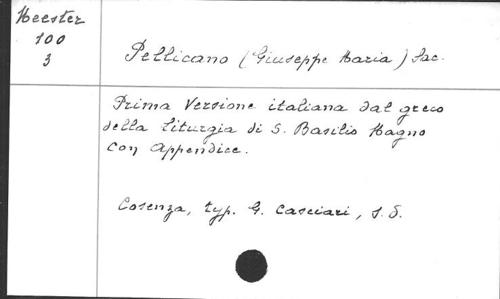 Meester
100
3
Pellicano (Giuseppe Maria) Sac.
Prima Versione italiana dal greco
della liturgia di S. Basilio Magno
con Appendice.
Cosenza, typ. G. Casciari, s.d.